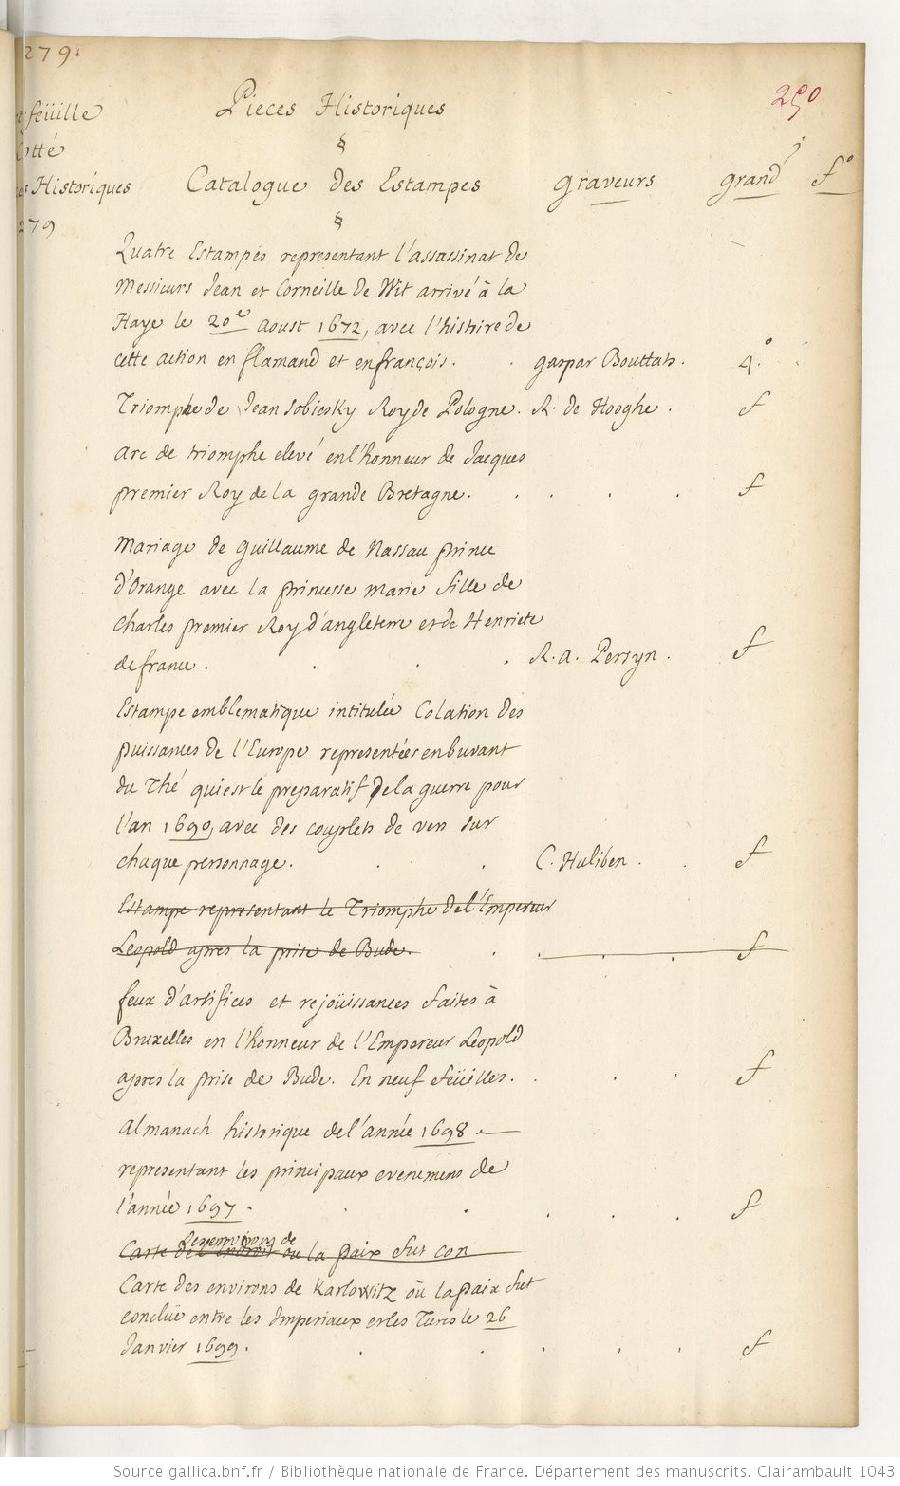 279.
feüille
Cotté
Historiques
279
Pieces Historiques
250
§
Catalogue Des Estampes
graveurs
grand
f°
§
Quatre Estampes representant l'assassinat de
Messieurs Jean et Corneille De Wit arrivé à la
Haye le 20e Aoust 1672, avec l'histoire de
cette action en flamand et en françois. gaspar Bouttats. 4.°
Triomphe de Jean Sobiesky Roy de Pologne. R. de Hooghe. f
Arc de triomphe elevé en l'honneur de Jacques
premier Roy de la grande Bretagne. f
Mariage de guillaume de Nassau prince
d'Orange avec la princesse marie fille de
Charles premier Roy d'angleterre et de Henriete
de france. R. a. Persyn. f
Estampe emblematique intitulée Colation des
puissances de l'Europe representées en buvant
du Thé qui est le preparatif de la guerre pour
l'an 1690, avec des couplets de vers sur
chaque personnage. C. Huliben. f
Estampe representant le Triomphe de l'Empereur
Leopold apres la prise de Bude. f
feux d'artifices et rejoüissances faites à
Bruxelles en l'honneur de l'Empereur Leopold
apres la prise de Bude. En neuf feüilles. f
Almanach historique de l'année 1698
representant les principaux evenemens de
l'année 1697. f
les environs de
Carte de l'endroit ou la paix fut con
Carte des environs de Karlowitz où la paix fut
conclüe entre les Imperiaux et les Turcs le 26
Janvier 1699. f
Source gallica.bnf.fr / Bibliothèque nationale de France. Département des manuscrits. Clairambault 1043